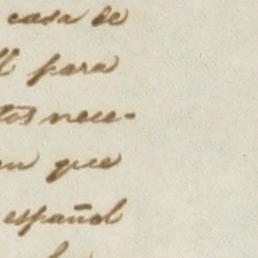 casa de
para
tos nece-
que
español